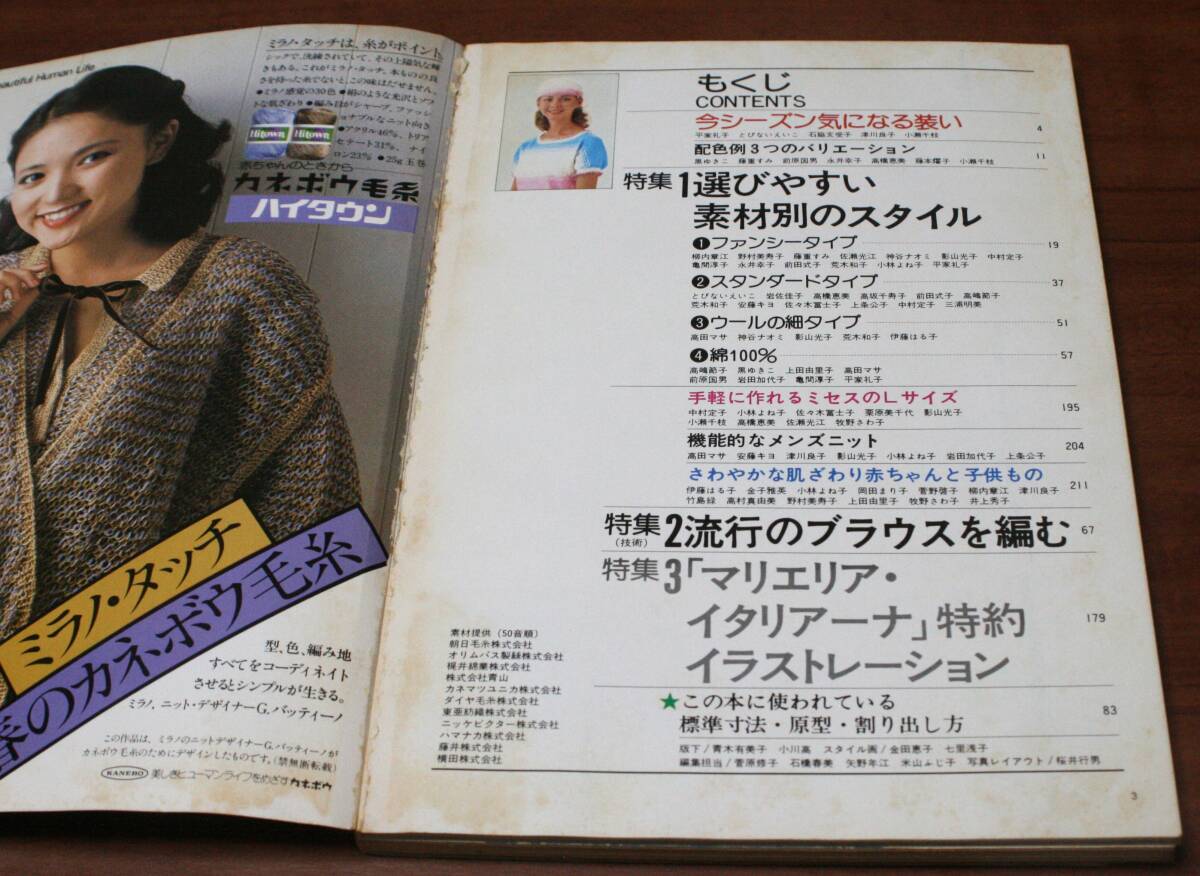 eautiful Human Life
ミラノ・タッチは、糸がポイント。
シックで、洗練されていて、その上陽気な輝
きもある。これがミラノ・タッチ。本ものの良
さを持った糸でないと、この味はだせません。
●ミラノ感覚の30色 ●絹のような光沢とソフ
トな肌ざわり ●編み目がシャープ。ファッシ
ョナブルなニット向き
●アクリル46%、トリア
セテート31%、ナイ
ロン23% ●25g玉巻
Hitown
Hitown
赤ちゃんのときから
カネボウ毛糸
ハイタウン
ミラノ・タッチ
春のカネボウ毛糸
型、色、編み地
すべてをコーディネイト
させるとシンプルが生きる。
ミラノ、ニット・デザイナーG.バッティーノ
この作品は、ミラノのニットデザイナーG.バッティーノが
カネボウ毛糸のためにデザインしたものです。(禁無断転載)
KANEBO 美しきヒューマンライフをめざす カネボウ
もくじ
CONTENTS
今シーズン気になる装い 4
平家礼子 とびないえいこ 石脇支受子 津川良子 小瀬千枝
配色例3つのバリエーション 11
黒ゆきこ 藤重すみ 前原国男 永井幸子 高橋恵美 藤本燿子 小瀬千枝
特集1選びやすい
素材別のスタイル
❶ファンシータイプ 19
柳内章江 野村美寿子 藤重すみ 佐瀬光江 神谷ナオミ 影山光子 中村定子
亀間淳子 永井幸子 前田式子 荒木和子 小林よね子 平家礼子
❷スタンダードタイプ 37
とびないえいこ 岩佐佳子 高橋恵美 高坂千寿子 前田式子 高嶋節子
荒木和子 安藤キヨ 佐々木冨士子 上条公子 中村定子 三浦明美
❸ウールの細タイプ 51
高田マサ 神谷ナオミ 影山光子 荒木和子 伊藤はる子
❹綿100% 57
高嶋節子 黒ゆきこ 上田由里子 高田マサ
前原国男 岩田加代子 亀間淳子 平家礼子
手軽に作れるミセスのLサイズ 195
中村定子 小林よね子 佐々木冨士子 栗原美千代 影山光子
小瀬千枝 高橋恵美 佐瀬光江 牧野さわ子
機能的なメンズニット 204
高田マサ 安藤キヨ 津川良子 影山光子 小林よね子 岩田加代子 上条公子
さわやかな肌ざわり赤ちゃんと子供もの 211
伊藤はる子 金子雅英 小林よね子 岡田まり子 菅野啓子 柳内章江 津川良子
竹島緑 高村真由美 野村美寿子 上田由里子 牧野さわ子 井上秀子
特集2流行のブラウスを編む 67
(技術)
特集3「マリエリア・
イタリアーナ」特約 179
イラストレーション
★この本に使われている
標準寸法・原型・割り出し方 83
版下/青木有美子 小川高 スタイル画/金田恵子 七里浅子
編集担当/菅原修子 石橋春美 矢野年江 米山ふじ子 写真レイアウト/桜井行男
素材提供(50音順)
朝日毛糸株式会社
オリムパス製絲株式会社
梶井綿業株式会社
株式会社青山
カネマツユニカ株式会社
ダイヤ毛糸株式会社
東亜紡織株式会社
ニッケビクター株式会社
ハマナカ株式会社
藤井株式会社
横田株式会社
3